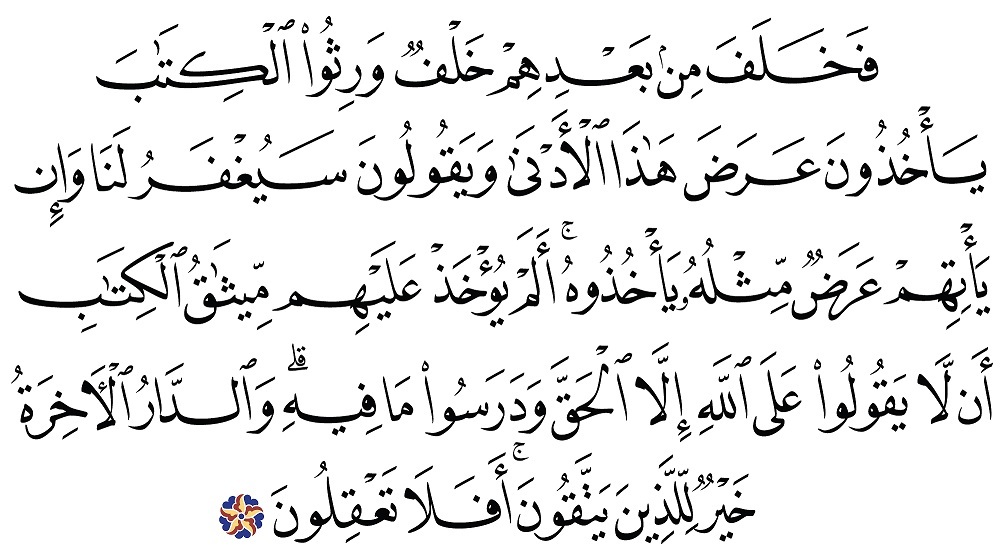 فَخَلَفَ مِنۢ بَعْدِهِمْ خَلْفٌ وَرِثُوا۟ ٱلْكِتَٰبَ
يَأْخُذُونَ عَرَضَ هَٰذَا ٱلْأَدْنَىٰ وَيَقُولُونَ سَيُغْفَرُ لَنَا وَإِن
يَأْتِهِمْ عَرَضٌ مِّثْلُهُۥ يَأْخُذُوهُ ۚ أَلَمْ يُؤْخَذْ عَلَيْهِم مِّيثَٰقُ ٱلْكِتَٰبِ
أَن لَّا يَقُولُوا۟ عَلَى ٱللَّهِ إِلَّا ٱلْحَقَّ وَدَرَسُوا۟ مَا فِيهِ ۗ وَٱلدَّارُ ٱلْـَٔاخِرَةُ
خَيْرٌ لِّلَّذِينَ يَتَّقُونَ ۚ أَفَلَا تَعْقِلُونَ